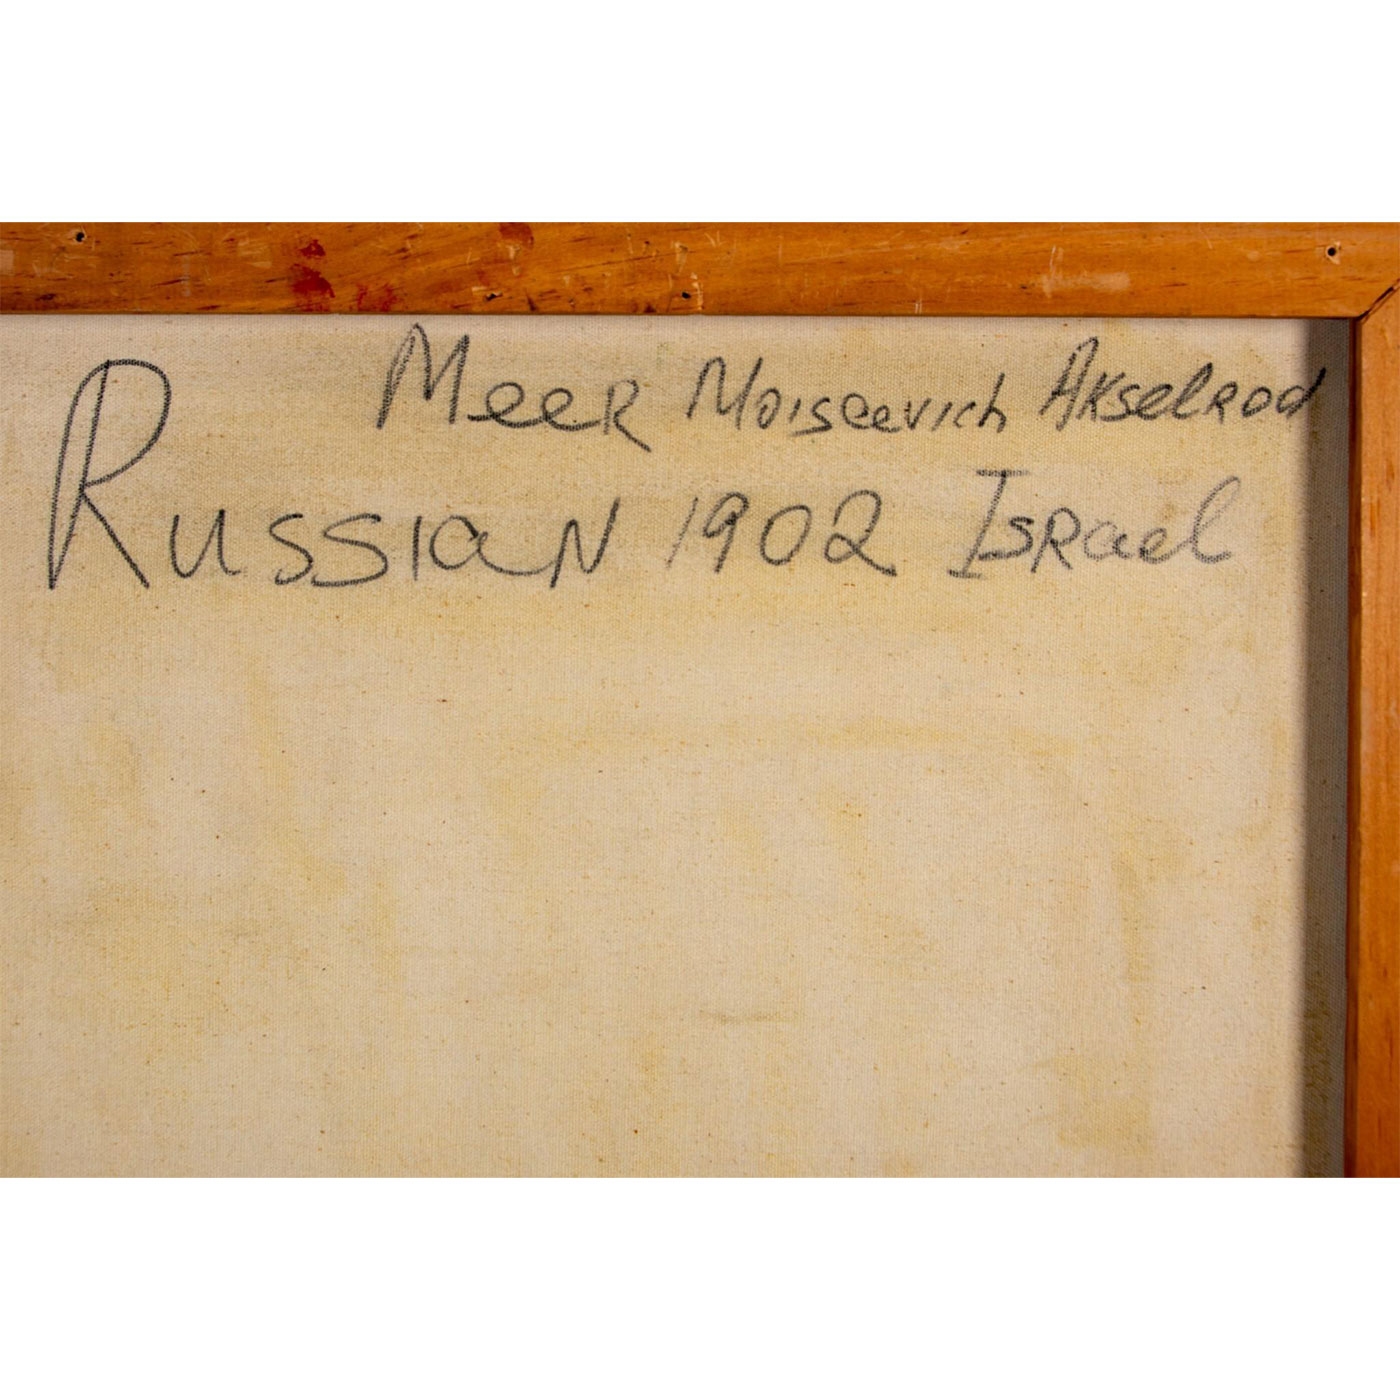 Meer Moiseevich Akselrod
Russian 1902 Israel